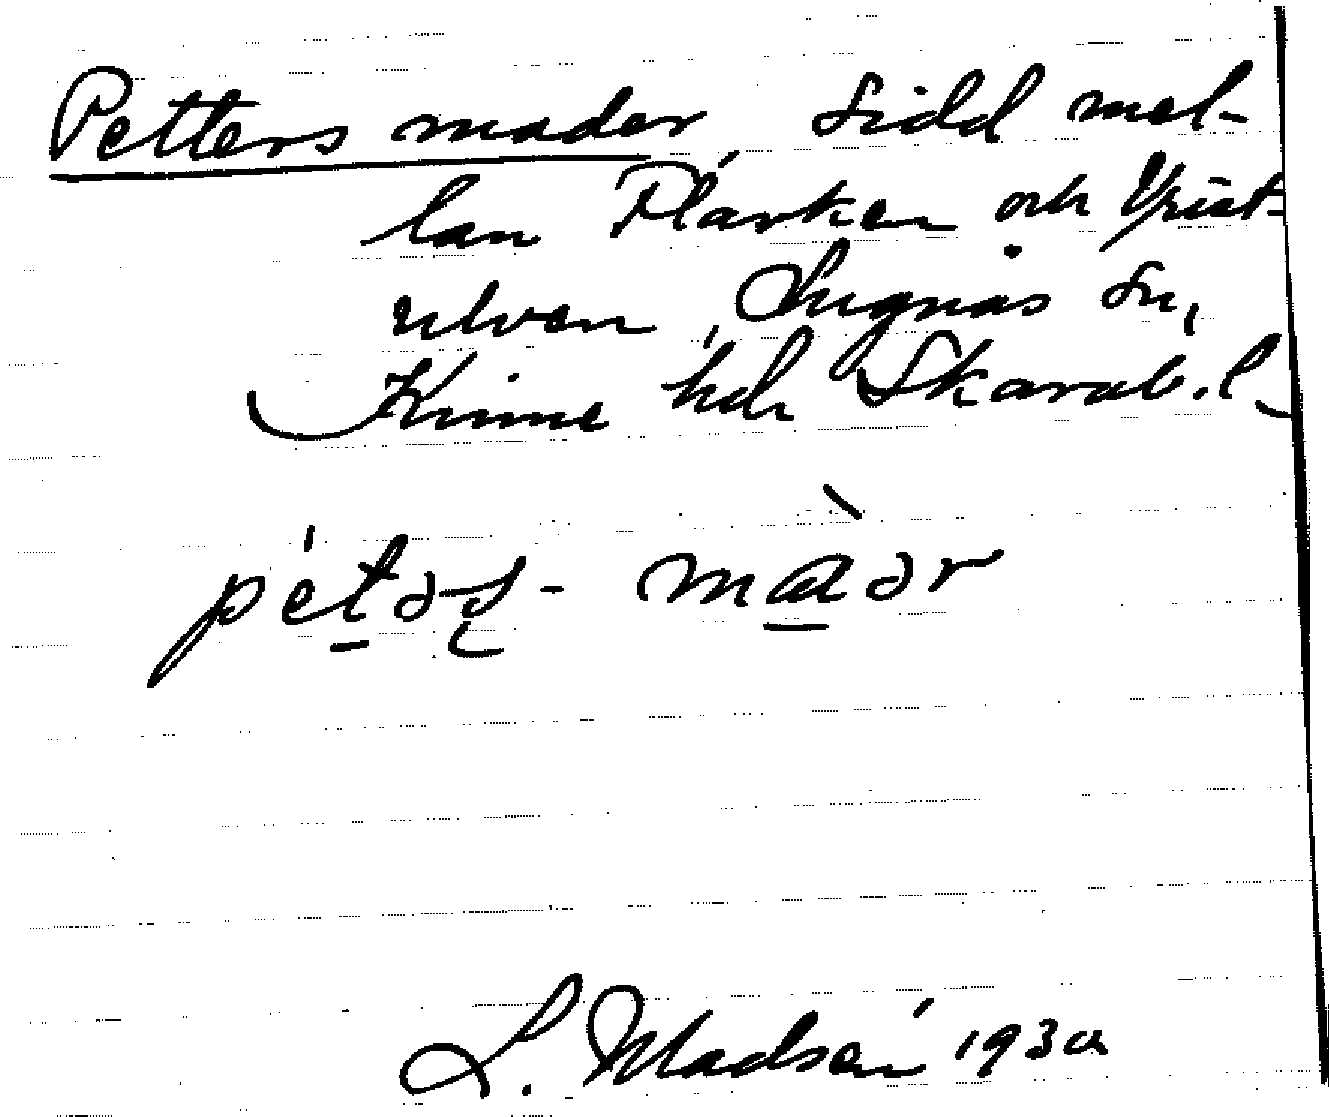 Petters mader, Sidd mel-
lan Plarken och
ulven, Lugnås sn,
Kinne hd, Skarab. l.
petəʂ- maər
L. Madsén 1930